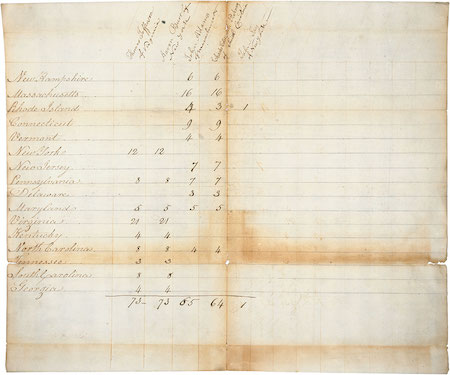 Thomas Jefferson of Virginia
Aaron Burr of New York
John Adams of Massachusetts
Charles Pinckney of South Carolina
John Jay of New York
New Hampshire 6 6
Massachusetts 16 16
Rhode Island 4 3 1
Connecticut 9 9
Vermont 4 4
New York 12 12
New Jersey 7 7
Pennsylvania 8 8 7 7
Delaware 3 3
Maryland 5 5 5 5
Virginia 21 21
Kentucky 4 4
North Carolina 8 8 4 4
Tennessee 3 3
South Carolina 8 8
Georgia 4 4
73 73 65 64 1